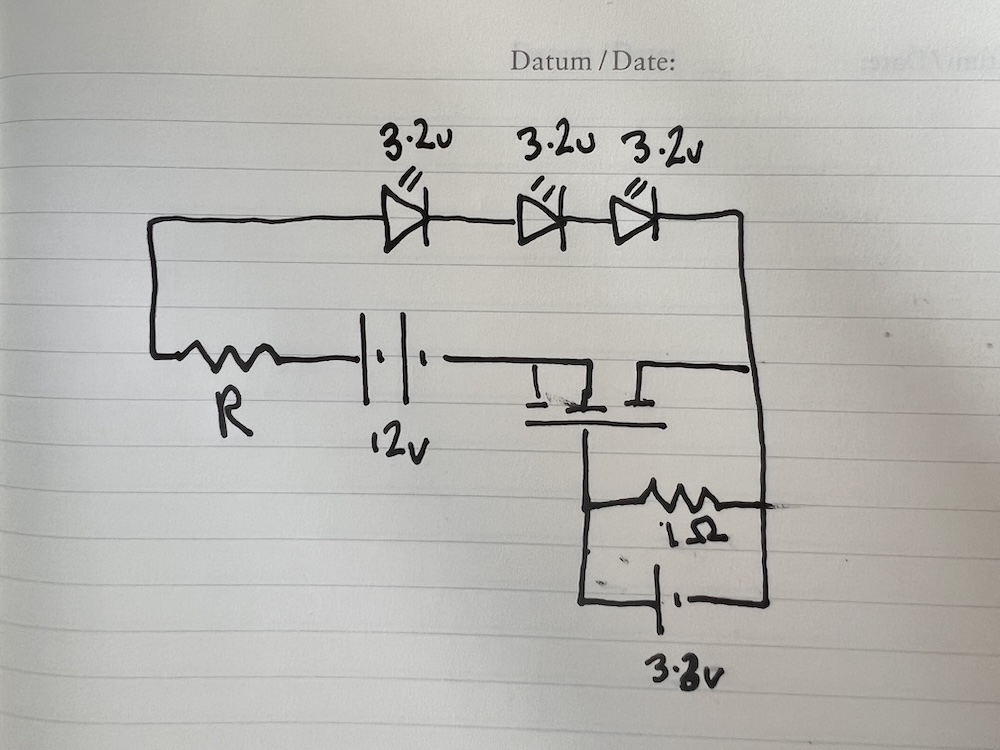 Datum / Date:
3.2v 3.2v 3.2v
R
12v
1Ω
3.3v